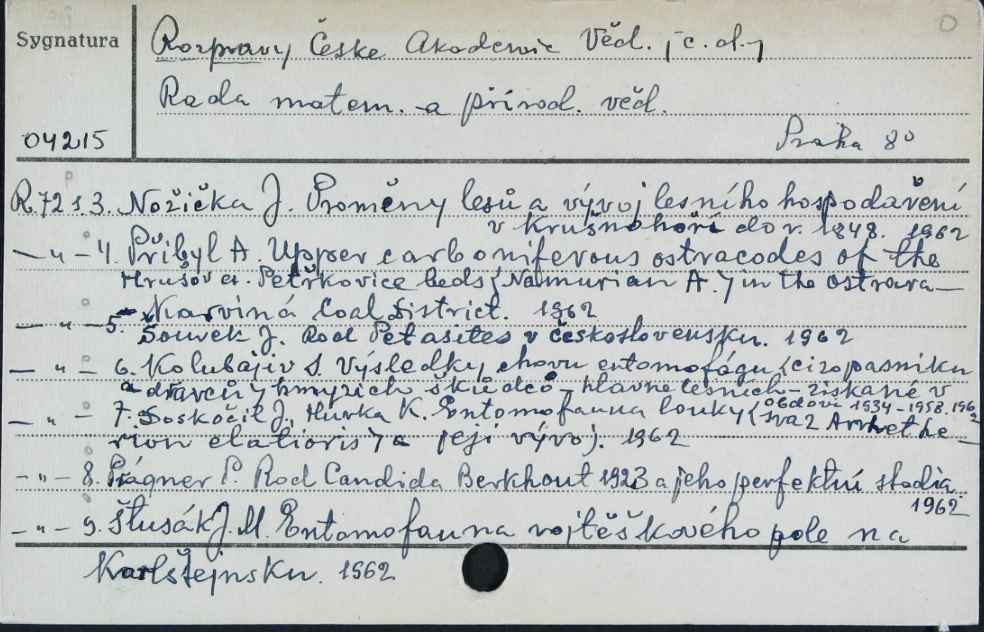 Sygnatura
Rozpravy České Akademie Věd. /c.d./
Rada matem. a přírod. věd.
04215
Praha 8°
R.72 z.3. Nožička J. Proměny lesů a vývoj lesního hospodaření
v Krušnohoří do r. 1848. 1962
— " — 4. Přibyl A. Upper carboniferous ostracodes of the
Hrušov a. Petřkovice beds /Namurian A./ in the Ostrava—
— Karviná Coal District. 1962
— " — 5. Souvek J. Rod Petasites v Československu. 1962
— " — 6. Kolubajiv S. Výsledky chovu entomofágu /cizopasníku
a dravců / hmyzích škůdců – hlavne lesních – získané v
období 1934–1958. 1962
— " — 7. Doskočil J, Hůrka K. Entomofauna louky (svaz Arrhethe—
rion elatioris) a její vývoj. 1962
— " — 8. Prágner P. Rod Candida Berkhout 1923 a jeho perfektní stadia
1962
— " — 9. Štusák J.M. Entomofauna vojtěškového pole na
Karlštejnsku. 1962